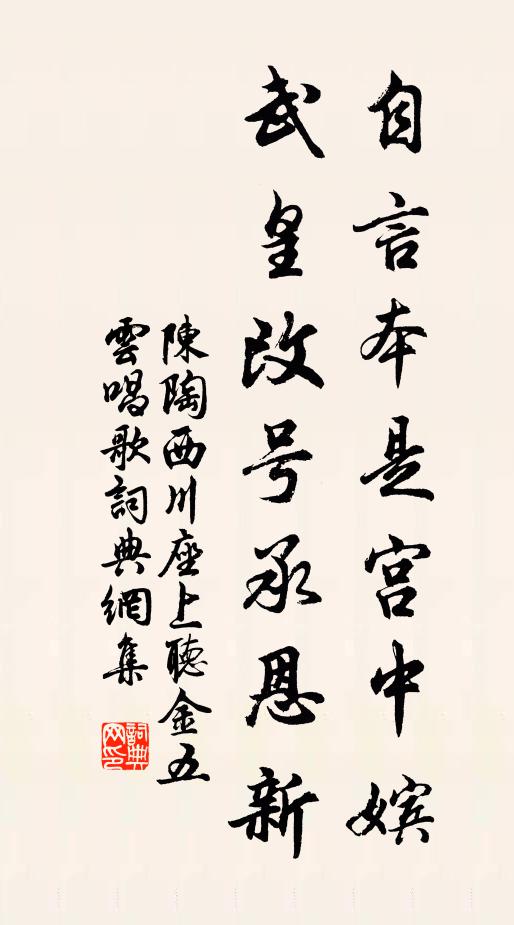 自言本是宫中嫔
武皇改号承恩新
陳陶西川座上聽金五
雲唱歌詞典網集
詞典网印